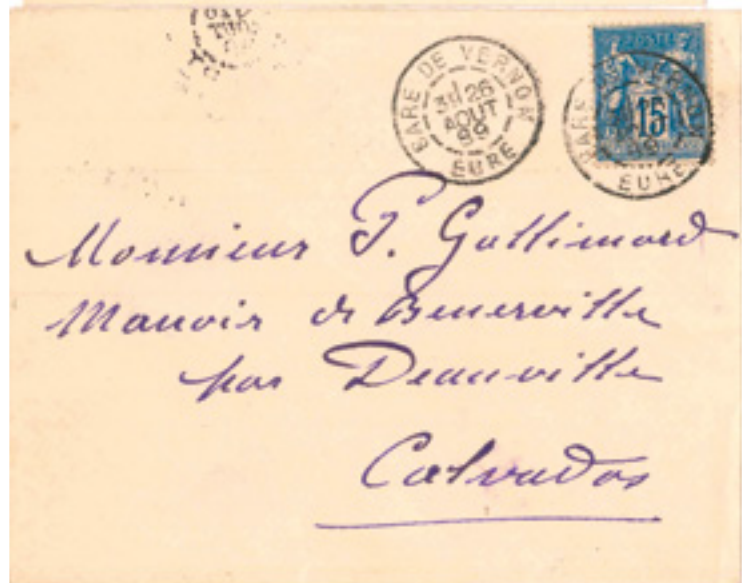 GARE DE VERNON
3E 26
AOUT
99
EURE
POSTE
15
EURE
Monsieur P. Gallimard
Manoir de Benerville
par Deauville
Calvados